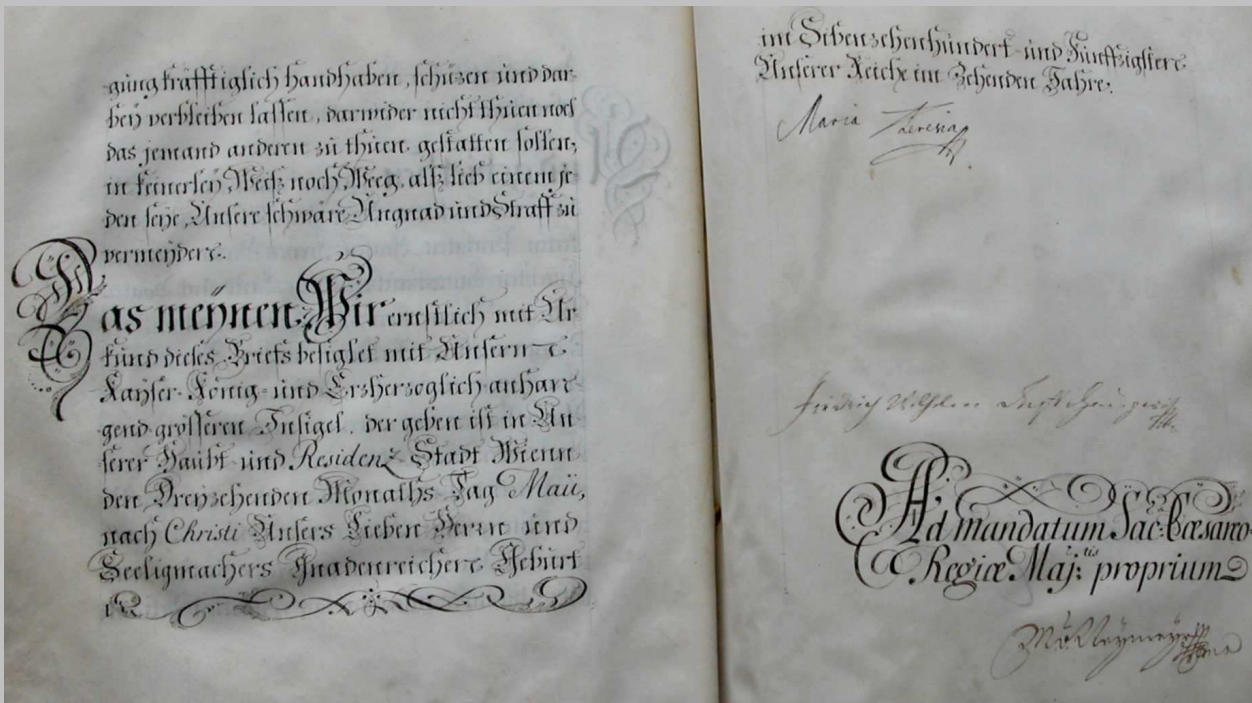 gung kräfftiglich handhaben, schüzen und dar-
bey verbleiben lassen, darwider nicht thuen noch
das jemand anderen zu thuen gestatten sollen,
in keinerley Weiß noch Weeg, alß lieb einem je-
den seye, Unsere schwäre Ungnad und Straff zu
vermeyden.
Das meÿnen Wir ernstlich mit Ur
kund dieses Briefs besiglet mit Unsern
Kayser- König- und Erzherzoglich anhan-
gend-grösseren Insigel, der geben ist in Un
serer Haubt- und Residenz Stadt Wienn
den Dreyzehenden Monaths Tag Maii,
nach Christi Unsers Lieben Herrn und
Seeligmachers Gnadenreichen Geburt
im Sibenzehenhundert- und Fünffzigsten
Unserer Reiche im Zehenden Jahre.
Maria Theresia
Friedrich Wilhelm
Ad mandatum Sac: Cæsareo-
Regiæ Maj:tis proprium